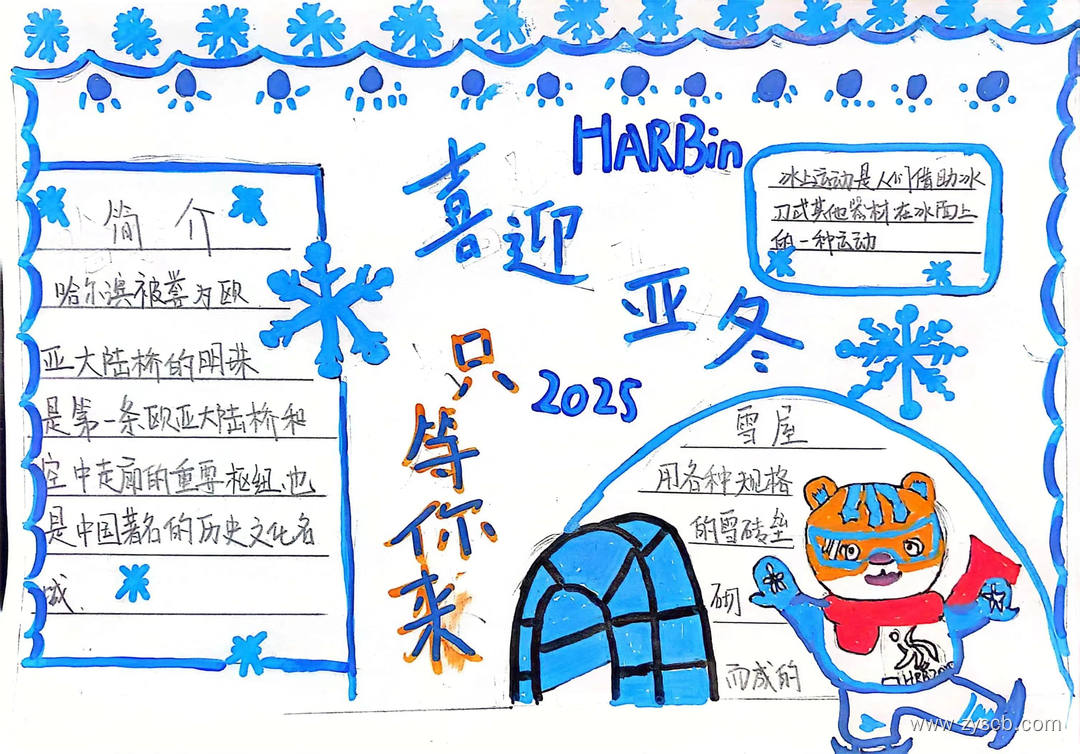 HARBin
喜迎亚冬
2025
只等你来
简介
哈尔滨被誉为欧
亚大陆桥的明珠
是第一条欧亚大陆桥和
空中走廊的重要枢纽,也
是中国著名的历史文化名
城.
冰上运动是人们借助冰
刀或其他器材在冰面上
的一种运动
雪屋
用各种规格
的雪砖垒
砌
而成的
www.zyscb.com